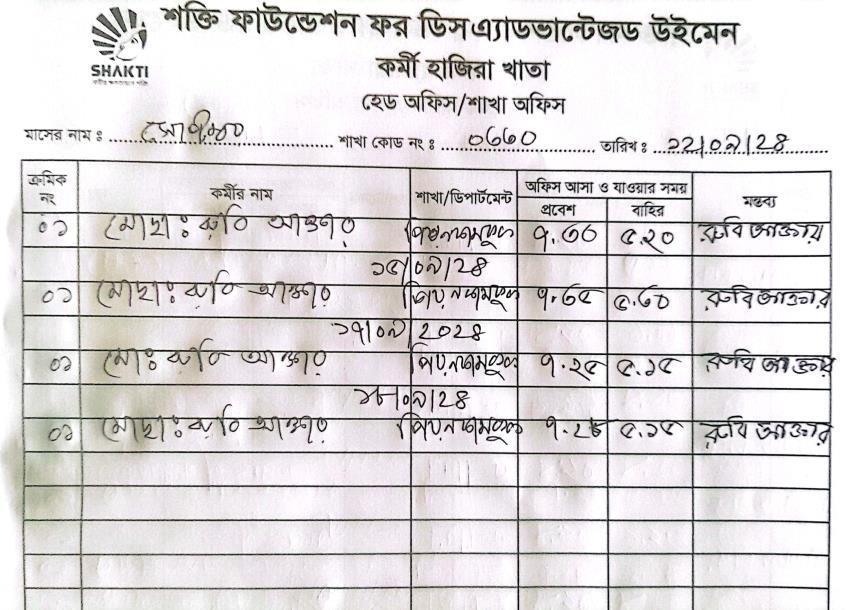 শক্তি ফাউন্ডেশন ফর ডিসএ্যাডভান্টেজড উইমেন
SHAKTI
কর্মী হাজিরা খাতা
হেড অফিস/শাখা অফিস
মাসের নাম ঃ শাখা কোড নং ঃ ০৬৬০ তারিখ ঃ ১২/০৯/২৪
ক্রমিক নং কর্মীর নাম শাখা/ডিপার্টমেন্ট অফিস আসা ও যাওয়ার সময় মন্তব্য
প্রবেশ বাহির
০১ মোছাঃ রুবি আক্তার ৭.৩০ ৫.২০ রুবি আক্তার
১৫/০৯/২৪
০১ মোছাঃ রুবি আক্তার ৭.৩৫ ৫.৩০ রুবি আক্তার
১৭/০৯/২০২৪
০১ মোঃ রুবি আক্তার ৭.২৫ ৫.১৫ রুবি আক্তার
১৮/০৯/২৪
০১ মোছাঃ রুবি আক্তার ৫.১৫ রুবি আক্তার